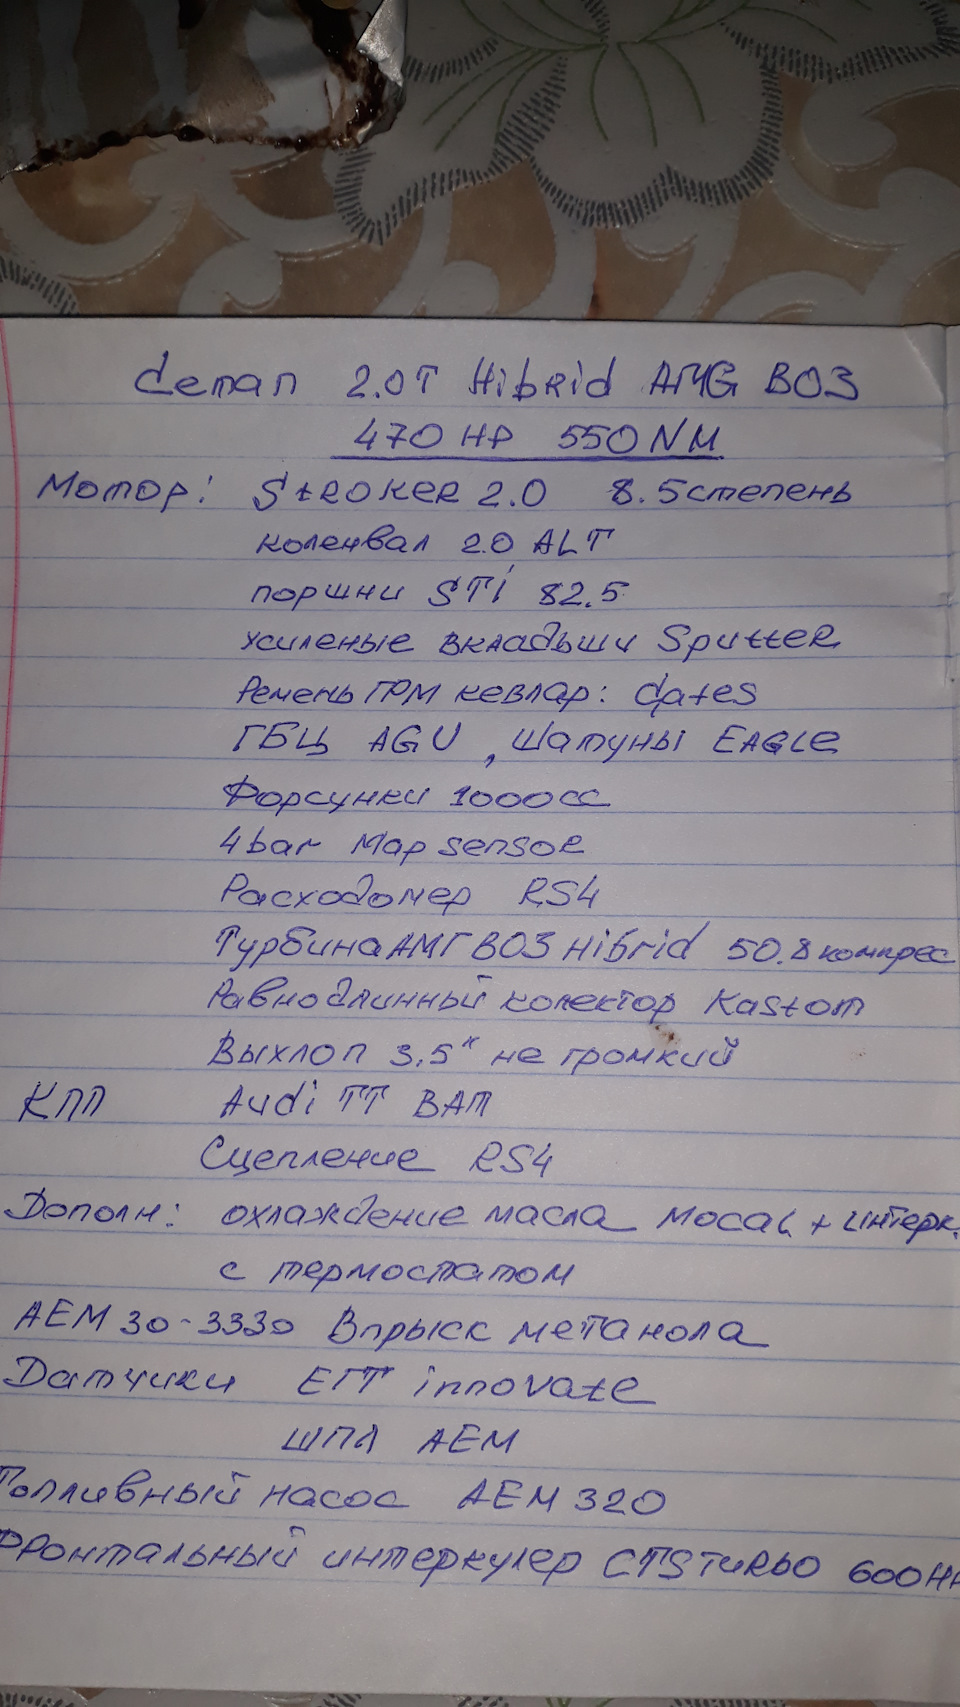 Этап 2.0T Hibrid AMG B03
470 HP 550 NM
Мотор: StROKER 2.0 8.5 степень
коленвал 2.0 ALT
поршни STi 82.5
усиленые вкладыши SputteR
Ремень ГРМ кевлар: Gates
ГБЦ AGU, Шатуны EAGLe
Форсунки 1000cc
4bar Map sensoR
Расходомер RS4
Турбина АМГ B03 Hibrid 50.8 компрес
Равнодлинный колектор Kastom
Выхлоп 3.5" не громкий
КПП Audi TT BAM
Сцепление RS4
Дополн: охлаждение масла MocaL + интерк.
с термостатом
AEM 30-3330 Впрыск метанола
Датчики ЕГТ innovate
ШПЛ AEM
Топливный насос AEM 320
Фронтальный интеркулер CTS TuRbO 600HP